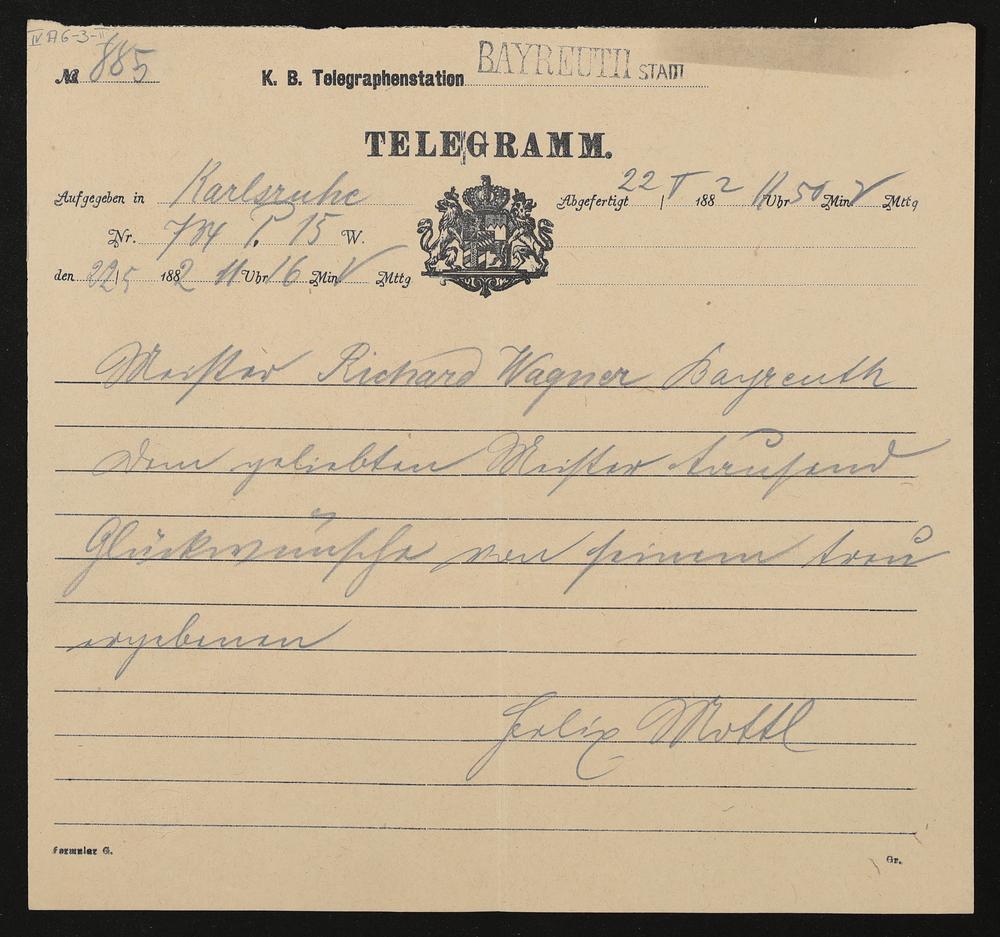 IV A6-3-II
No 885 K. B. Telegraphenstation BAYREUTH STADT
TELEGRAMM.
Aufgegeben in Karlsruhe Abgefertigt 22/V 1882 11 Uhr 50 Min V Mttg
Nr. P. 15 W.
den 22/5 1882 11 Uhr 16 Min V Mttg
Meister Richard Wagner Bayreuth
Dem geliebten Meister tausend
Glückwünsche von seinem treu
ergebenen
Felix Mottl
Formular G. Gr.